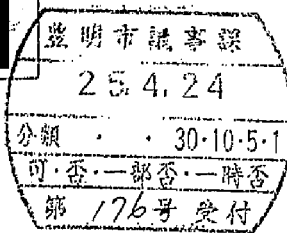 豊明市議事課
25.4.24
分類 ・ ・ 30・10・5・1
可・否・一部否・一時否
第 176号 受付